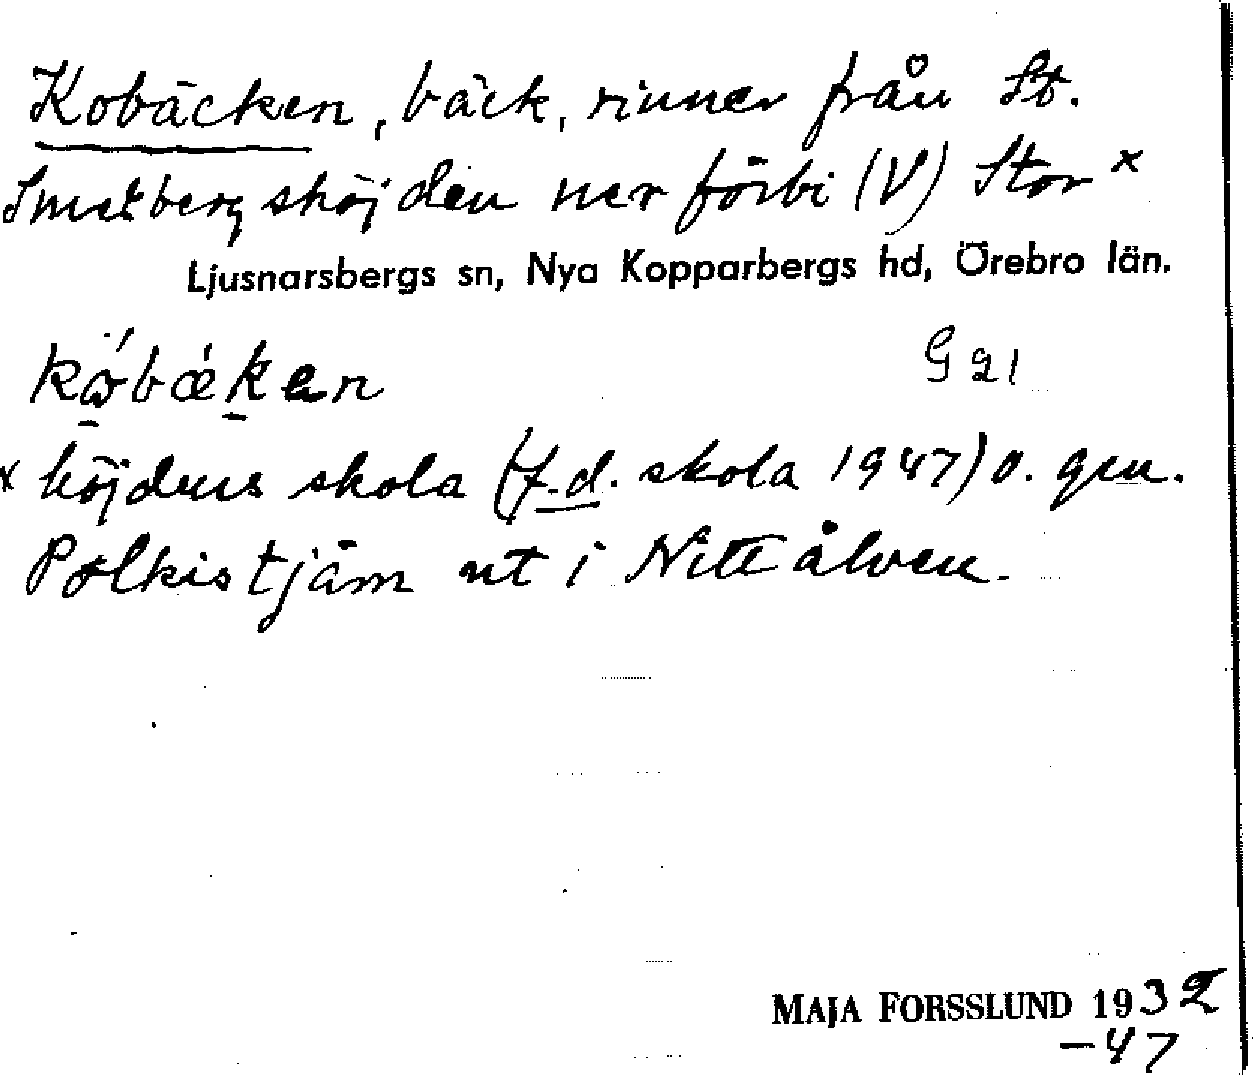 Kobäcken, bäck, rinner från St.
Smalbergshöjden ner förbi (V) Stor x
Ljusnarsbergs sn, Nya Kopparbergs hd, Örebro län.
G 21
x höjdens skola (f.d. skola 1947) o. gm.
Polkistjärn ut i Nittälven.
MAJA FORSSLUND 1932
-47